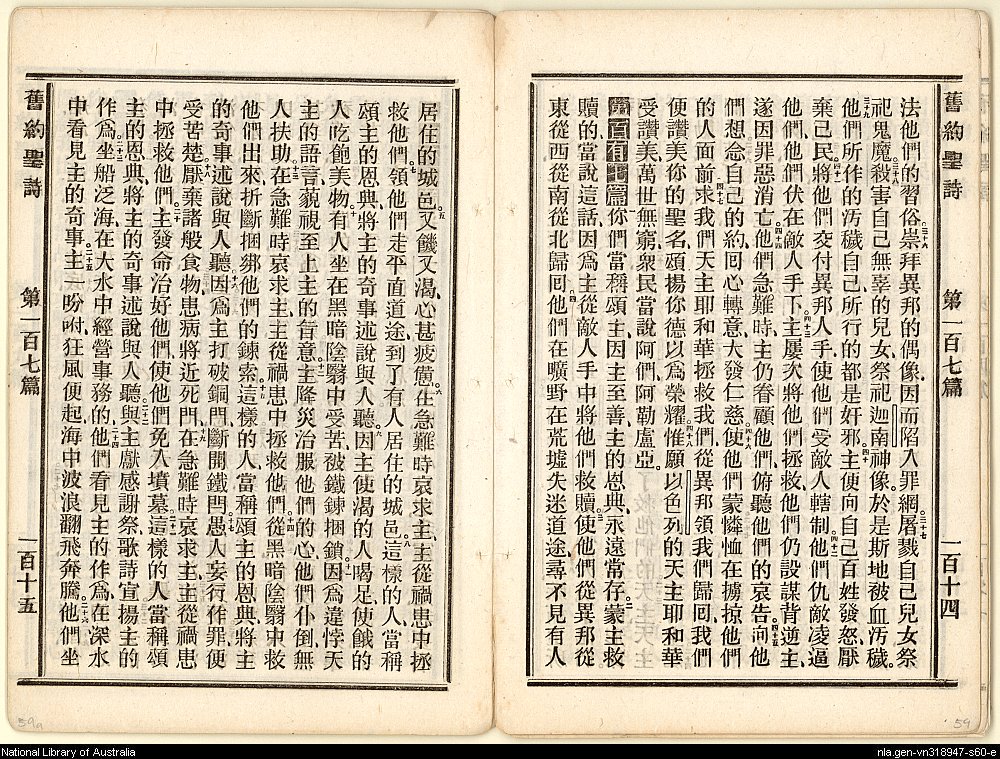 舊約聖詩 第一百七篇 一百十四
法他們的習俗三十六崇拜異邦的偶像因而陷入罪網三十七屠戮自己兒女祭
祀鬼魔三十八殺害自己無辜的兒女祭祀迦南神像於是斯地被血汚穢
三十九他們所作的汚穢自己所行的都是奸邪四十主便向自己百姓發怒厭
棄己民四十一將他們交付異邦人手使他們受敵人轄制四十二他們仇敵凌逼
他們他們伏在敵人手下四十三主屢次將他們拯救他們仍設謀背逆主
遂因罪惡消亡四十四他們急難時主仍眷顧他們俯聽他們的哀告四十五向他
們想念自己的約囘心轉意大發仁慈四十六使他們蒙憐恤在擄掠他們
的人面前四十七求我們天主耶和華拯救我們從異邦領我們歸囘我們
便讚美你的聖名頌揚你德以爲榮耀四十八惟願以色列的天主耶和華
受讚美萬世無窮衆民當說阿們阿勒盧亞
第一百有七篇你們當稱頌主因主至善主的恩典永遠常存二蒙主救
贖的當說這話因爲主從敵人手中將他們救贖三使他們從異邦從
東從西從南從北歸囘四他們在曠野在荒墟失迷道途尋不見有人
舊約聖詩 第一百七篇 一百十五
居住的城邑五又饑又渴心甚疲憊六在急難時哀求主主從禍患中拯
救他們七領他們走平直道途到了有人居住的城邑八這樣的人當稱
頌主的恩典將主的奇事述說與人聽九因主使渴的人喝足使餓的
人吃飽美物十有人坐在黑暗陰翳中受苦被鐵鍊捆鎖十一因爲違悖天
主的語言藐視至上主的旨意十二主降災治服他們的心他們仆倒無
人扶助十三在急難時哀求主主從禍患中拯救他們十四從黑暗陰翳中救
他們出來折斷捆綁他們的鍊索十五這樣的人當稱頌主的恩典將主
的奇事述說與人聽十六因爲主打破銅門斷開鐵閂十七愚人妄行作罪便
受苦楚十八厭棄諸般食物患病將近死門十九在急難時哀求主主從禍患
中拯救他們二十主發命治好他們使他們免入墳墓二十一這樣的人當稱頌
主的恩典將主的奇事述說與人聽二十二與主獻感謝祭歌詩宣揚主的
作爲二十三坐船泛海在大水中經營事務的二十四他們看見主的作爲在深水
中看見主的奇事二十五主一吩咐狂風便起海中波浪翻飛奔騰二十六他們坐
59a
59
National Library of Australia
nla.gen-vn318947-s60-e